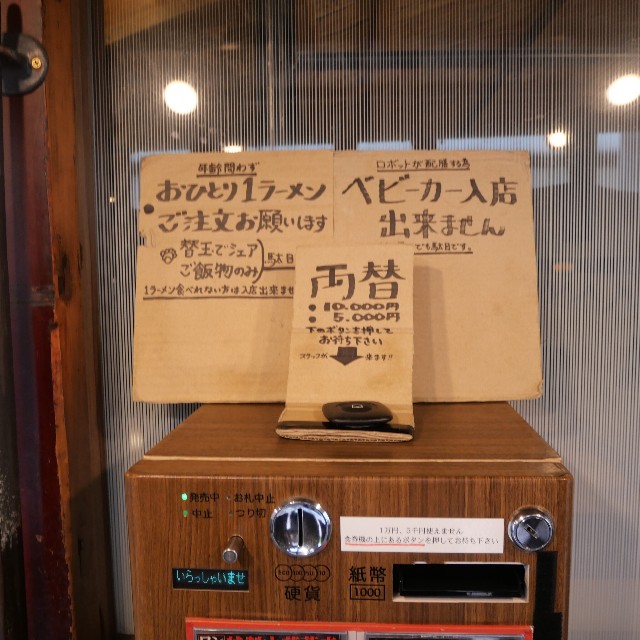 年齢問わず
おひとり1ラーメン
ご注文お願いします
替玉でシェア
ご飯物のみ
駄目
1ラーメン食べれない方は入店出来ませ
ロボットが配膳する為
ベビーカー入店
出来ません
でも駄目です。
両替
・10.000円
・5.000円
下のボタンを押して
お待ち下さい
スタッフが 来ます!!
発売中 お札中止
中止 つり切
いらっしゃいませ
1万円、5千円使えません
食券機の上にあるボタンを押してお待ち下さい
500 100 50 10
硬貨
紙幣
1000